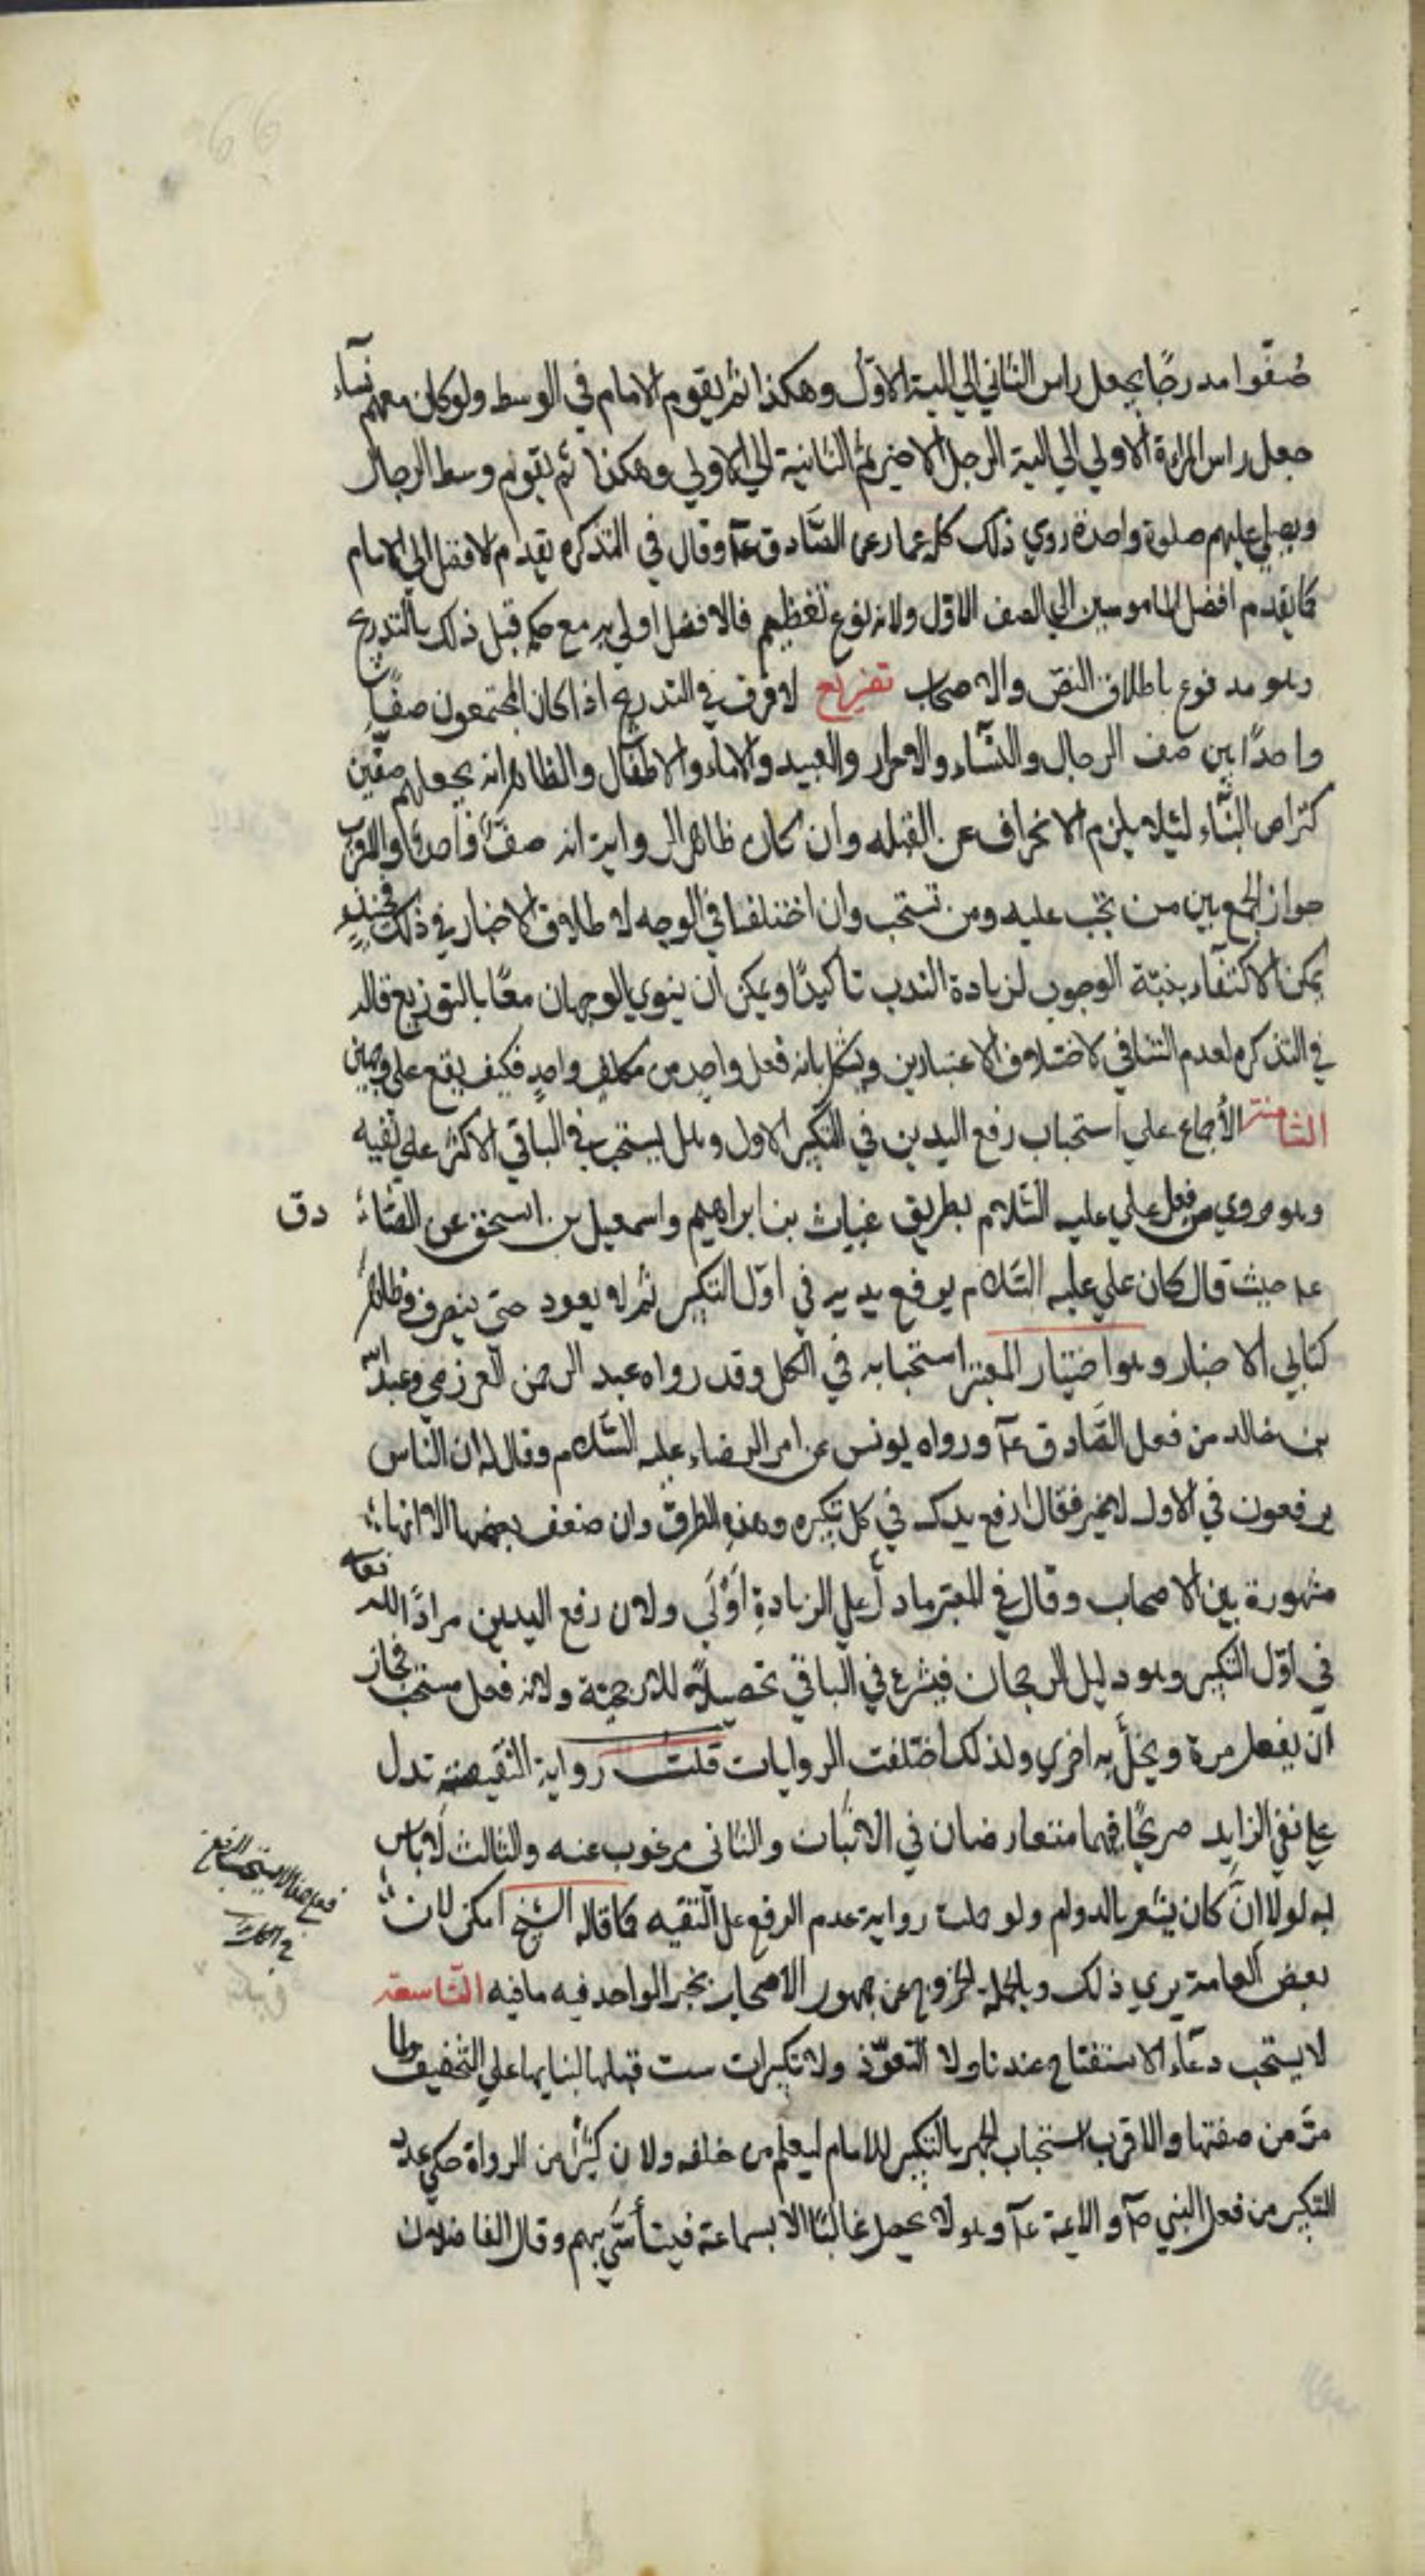 66
صُفّوا مدرجًا يجعل راس الثاني الي الية الاوّل وهكذا ثم يقوم الامام في الوسط ولو كان معهم نسآء
جعل راس المراة الاولي الي الية الرجل الاخير ثم الثانية الي الاولي وهكذا ثم يقوم وسط الرجال
ويصلي عليهم صلوة واحدة روي ذلك كله عمار عن الصّادق عآ وقال في التذكره يقدم الافضل الي الامام
كما يقدم افضل المامومين الي الصف الاوّل ولانه نوع تعظيم فالافضل اولي به مع حكمه قبل ذلك بالتدريج
وهو مدفوع باطلاق النصّ والاصحاب تفريع لا فرق في التدريج اذا كان المجتمعون صفًّا
واحدًا بين صف الرجال والنسّاء والاحرار والعبيد والاماء والاطفال والظاهر انه يجعلهم صفّين
كتراص البنّاء لئلا يلزم الانحراف عن القبله وان كان ظاهر الرواية انه صفّ واحد والاقرب
جواز الجمع بين من تجب عليه ومن تستحب وان اختلفا في الوجه لاطلاق الاخبار في ذلك فحينئذٍ
يمكن الاكتفآء بنيّة الوجوب لزيادة الندب تاكيدًا ويمكن ان ينوي الوجهان معًا بالتوزيع قاله
في التذكره لعدم التنافي لاختلاف الاعتبارين ويشكل بانه فعل واحد من مكلف واحدٍ فكيف يقع علي وجهين
الثامنة الأجماع علي استحباب رفع اليدين في التكبير الاول وهل يستحب في الباقي الاكثر علي نفيه
وهو مروي من فعل علي عليه السّلام بطريق غياث بن ابراهيم واسمعيل بن اسحق عن الصّاء دق
عآ حيث قال كان علي عليه السّلام يرفع يديه في اوّل التكبير ثم لا يعود حتي ينصرف وظاهر
كتابي الاخبار وهو اختيار المعتبر استحبابه في الكل وقد رواه عبد الرحمن العرزمي وعبد الله
بن خالد من فعل الصّادق عآ ورواه يونس عن امر الرضاء عليه السّلام وقال له ان الناس
يرفعون في الاول لا غير فقال ارفع يدك في كل تكبيره وهذه الطرق وان ضعف بعضها الا انها
مشهورة بين الاصحاب وقال في المعتبر ما دلّ علي الزيادةِ اَوْلَي ولان رفع اليدين مرادًا لله تعآ
في اوّل التكبير وهو دليل الرجحان فيشرع في الباقي تحصيلاً للارجحيّة ولانه فعل مستحب فجاز
ان يفعل مرة ويخلّ به اخري ولذلك اختلفت الروايات قلت رواية النقيصه تدل
علي نفي الزايد صريحًا فهما متعارضان في الاثبات والثاني مرغوب عنه والثالث لا باس
به لولا انّ كان يشعر بالدوام ولو حملت رواية عدم الرفع علي التقيه كما قاله الشيخ امكن لان
بعض العامة يري ذلك وبالجمله الخروج عن جمهور الاصحاب بخبر الواحد فيه ما فيه التّاسعة
لا يستحب دعآء الاستفتاح عندنا ولا التعوّذ ولا تكبيرات ست قبلها لبنايها علي التخفيف ولما
مرّ من صفتها والاقرب استحباب الجهر بالتكبير للامام ليعلم من خلفه ولان كثيرًا من الرواة حكي عدد
التكبير من فعل النبي صآ والايمة عآ وهو لا يحصل غالبًا الا بسماعه فيتأسّي بهم وقال الفاضلان